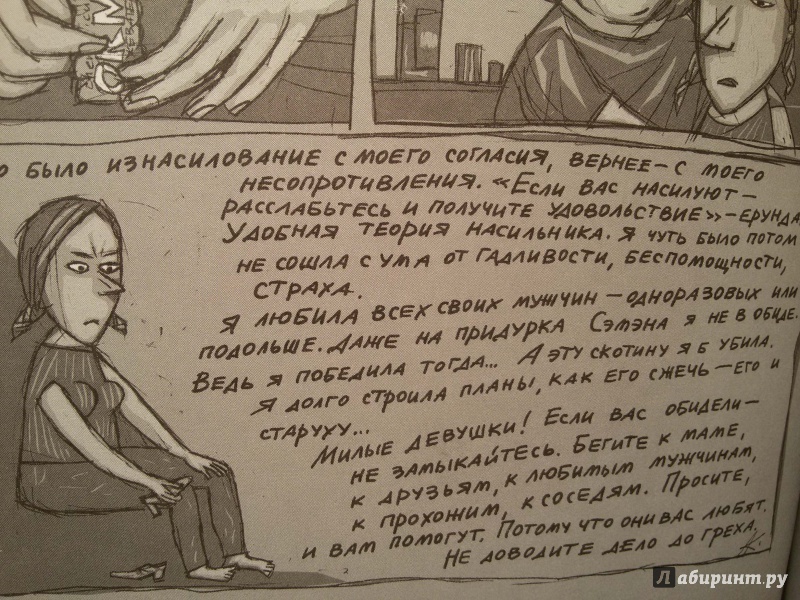 О БЫЛО ИЗНАСИЛОВАНИЕ С МОЕГО СОГЛАСИЯ, ВЕРНЕЕ — С МОЕГО
НЕСОПРОТИВЛЕНИЯ. «ЕСЛИ ВАС НАСИЛУЮТ —
РАССЛАБЬТЕСЬ И ПОЛУЧИТЕ УДОВОЛЬСТВИЕ» — ЕРУНДА.
УДОБНАЯ ТЕОРИЯ НАСИЛЬНИКА. Я ЧУТЬ БЫЛО ПОТОМ
НЕ СОШЛА С УМА ОТ ГАДЛИВОСТИ, БЕСПОМОЩНОСТИ,
СТРАХА.
Я ЛЮБИЛА ВСЕХ СВОИХ МУЖЧИН — ОДНОРАЗОВЫХ ИЛИ
ПОДОЛЬШЕ. ДАЖЕ НА ПРИДУРКА СЭМЭНА Я НЕ В ОБИДЕ.
ВЕДЬ Я ПОБЕДИЛА ТОГДА... А ЭТУ СКОТИНУ Я Б УБИЛА.
Я ДОЛГО СТРОИЛА ПЛАНЫ, КАК ЕГО СЖЕЧЬ — ЕГО И
СТАРУХУ...
МИЛЫЕ ДЕВУШКИ! ЕСЛИ ВАС ОБИДЕЛИ —
НЕ ЗАМЫКАЙТЕСЬ. БЕГИТЕ К МАМЕ,
К ДРУЗЬЯМ, К ЛЮБИМЫМ МУЖЧИНАМ,
К ПРОХОЖИМ, К СОСЕДЯМ. ПРОСИТЕ,
И ВАМ ПОМОГУТ. ПОТОМУ ЧТО ОНИ ВАС ЛЮБЯТ.
НЕ ДОВОДИТЕ ДЕЛО ДО ГРЕХА.
К.
Лабиринт.ру